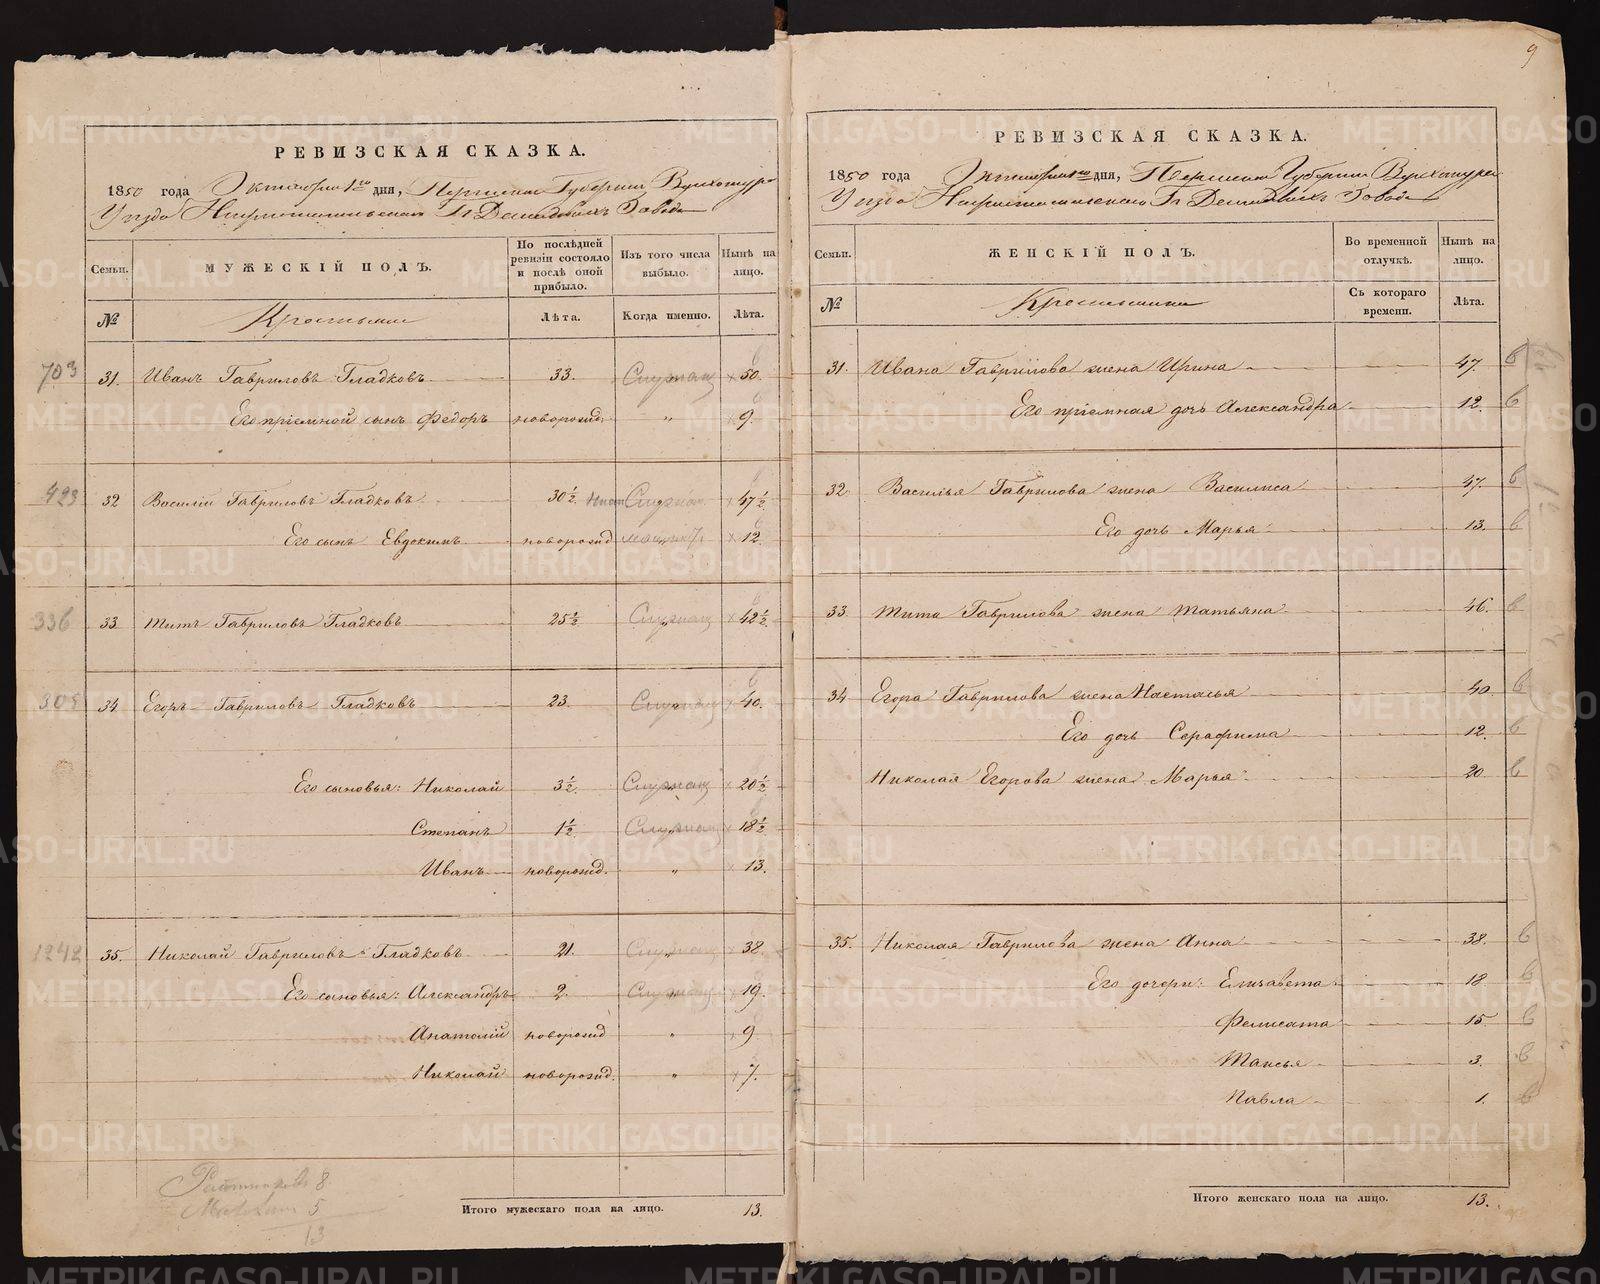 РЕВИЗСКАЯ СКАЗКА.
1850 года Октября 1го дня, Пермской Губернии Верхотурск
Уезда Нижнетагильскаго Гг Демидовыхъ Завода
Семьи.
МУЖЕСКІЙ ПОЛЪ.
По послѣдней ревизіи состояло и послѣ оной прибыло.
Изъ того числа выбыло.
Нынѣ на лицо.
№
Крестьяне
Лѣта.
Когда именно.
Лѣта.
703 31. Иванъ Гавриловъ Гладковъ 33. 50.
Его пріемной сынъ Федоръ новорожд. " 9.
423 32 Василій Гавриловъ Гладковъ 30½ 47½
Его сынъ Евдокимъ новорожд 12.
336 33 Титъ Гавриловъ Гладковъ 25½ " 42½
305 34 Егоръ Гавриловъ Гладковъ 23. " 40.
Его сыновья: Николай 3½ " 20½
Степанъ 1½ " 18½
Иванъ новорожд. " 13.
1242 35. Николай Гавриловъ Гладковъ 21. " 38.
Его сыновья: Александръ 2. " 19.
Анатолій новорожд " 9.
Николай новорожд. " 7.
8
5
13
Итого мужескаго пола на лицо. 13.
9
РЕВИЗСКАЯ СКАЗКА.
1850 года Октября 1го дня, Пермской Губернии Верхотурска
Уезда Нижнетагильскаго Гг Демидовыхъ Завода
Семьи.
ЖЕНСКІЙ ПОЛЪ.
Во временной отлучкѣ.
Нынѣ на лицо.
№
Крестьянки
Съ котораго времени.
Лѣта.
31. Ивана Гаврилова жена Ирина 47.
Его пріемная дочь Александра 12.
32. Василья Гаврилова жена Василиса 47.
Его дочь Марья 13.
33. Тита Гаврилова жена Татьяна 46.
34 Егора Гаврилова жена Настасья 40
Его дочь Серафима 12.
Николая Егорова жена Марья 20
35. Николая Гаврилова жена Анна 38.
Его дочери: Елизавета 18
Фелисата 15
Таисья 3.
Павла 1.
Итого женскаго пола на лицо. 13.
METRIKI.GASO-URAL.RU